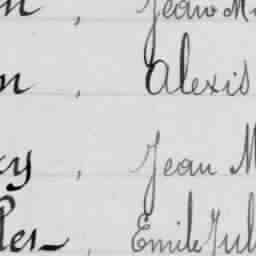 n , Jean M
n , Alexis
cy , Jean M
les , Emile Jul